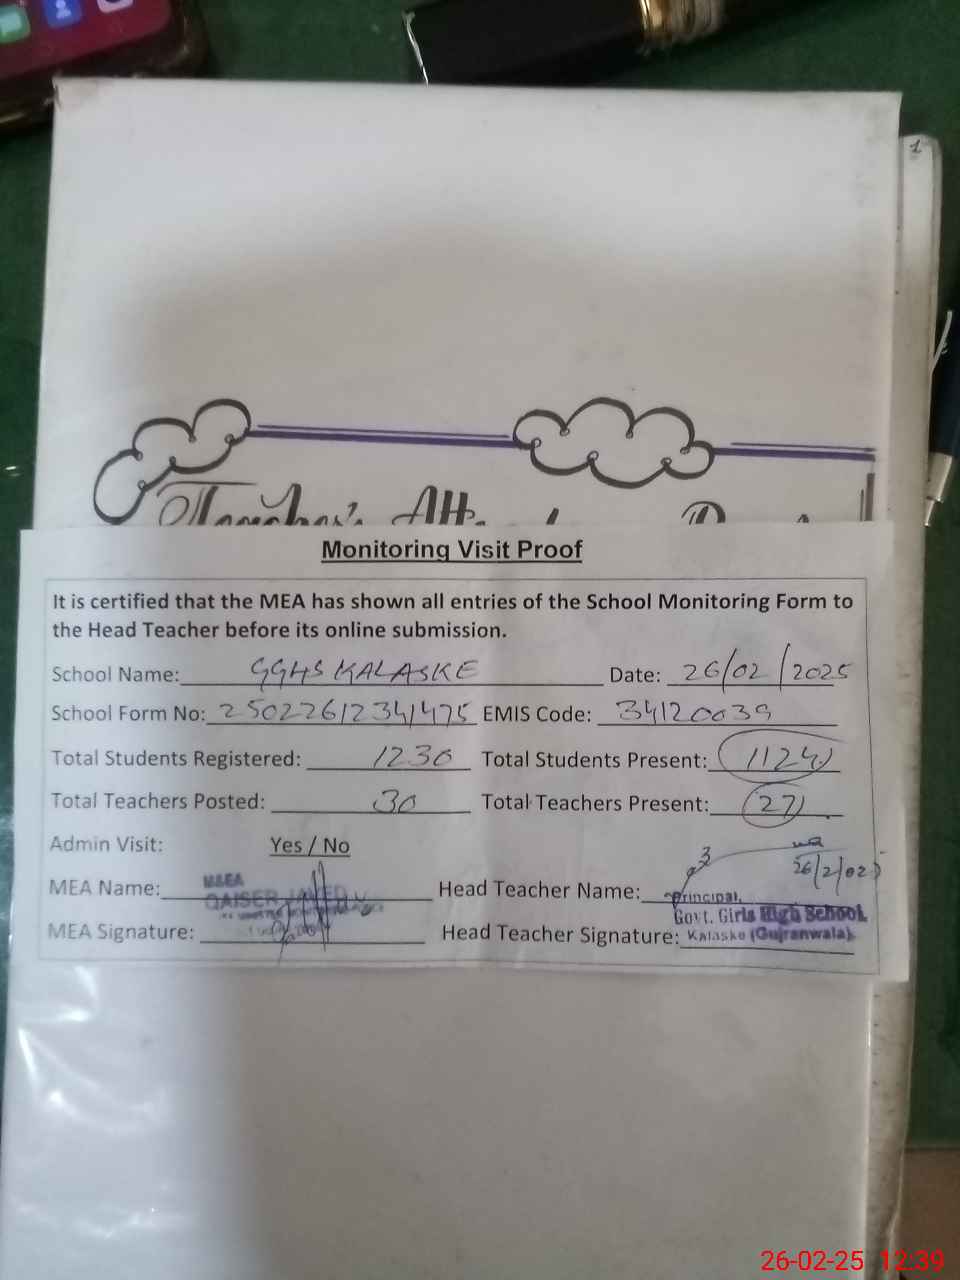 1
Teacher's
Monitoring Visit Proof
It is certified that the MEA has shown all entries of the School Monitoring Form to
the Head Teacher before its online submission.
School Name: GGHS KALASKE Date: 26/02/2025
School Form No: 25022612341475 EMIS Code: 34120039
Total Students Registered: 1230 Total Students Present: 1124
Total Teachers Posted: 30 Total Teachers Present: 27
Admin Visit: Yes / No
26/2/025
MEA Name: M&EA QAISER JAVED Head Teacher Name: Principal,
Govt. Girls High School,
MEA Signature: Head Teacher Signature: Kalaske (Gujranwala).
26-02-25 12:39